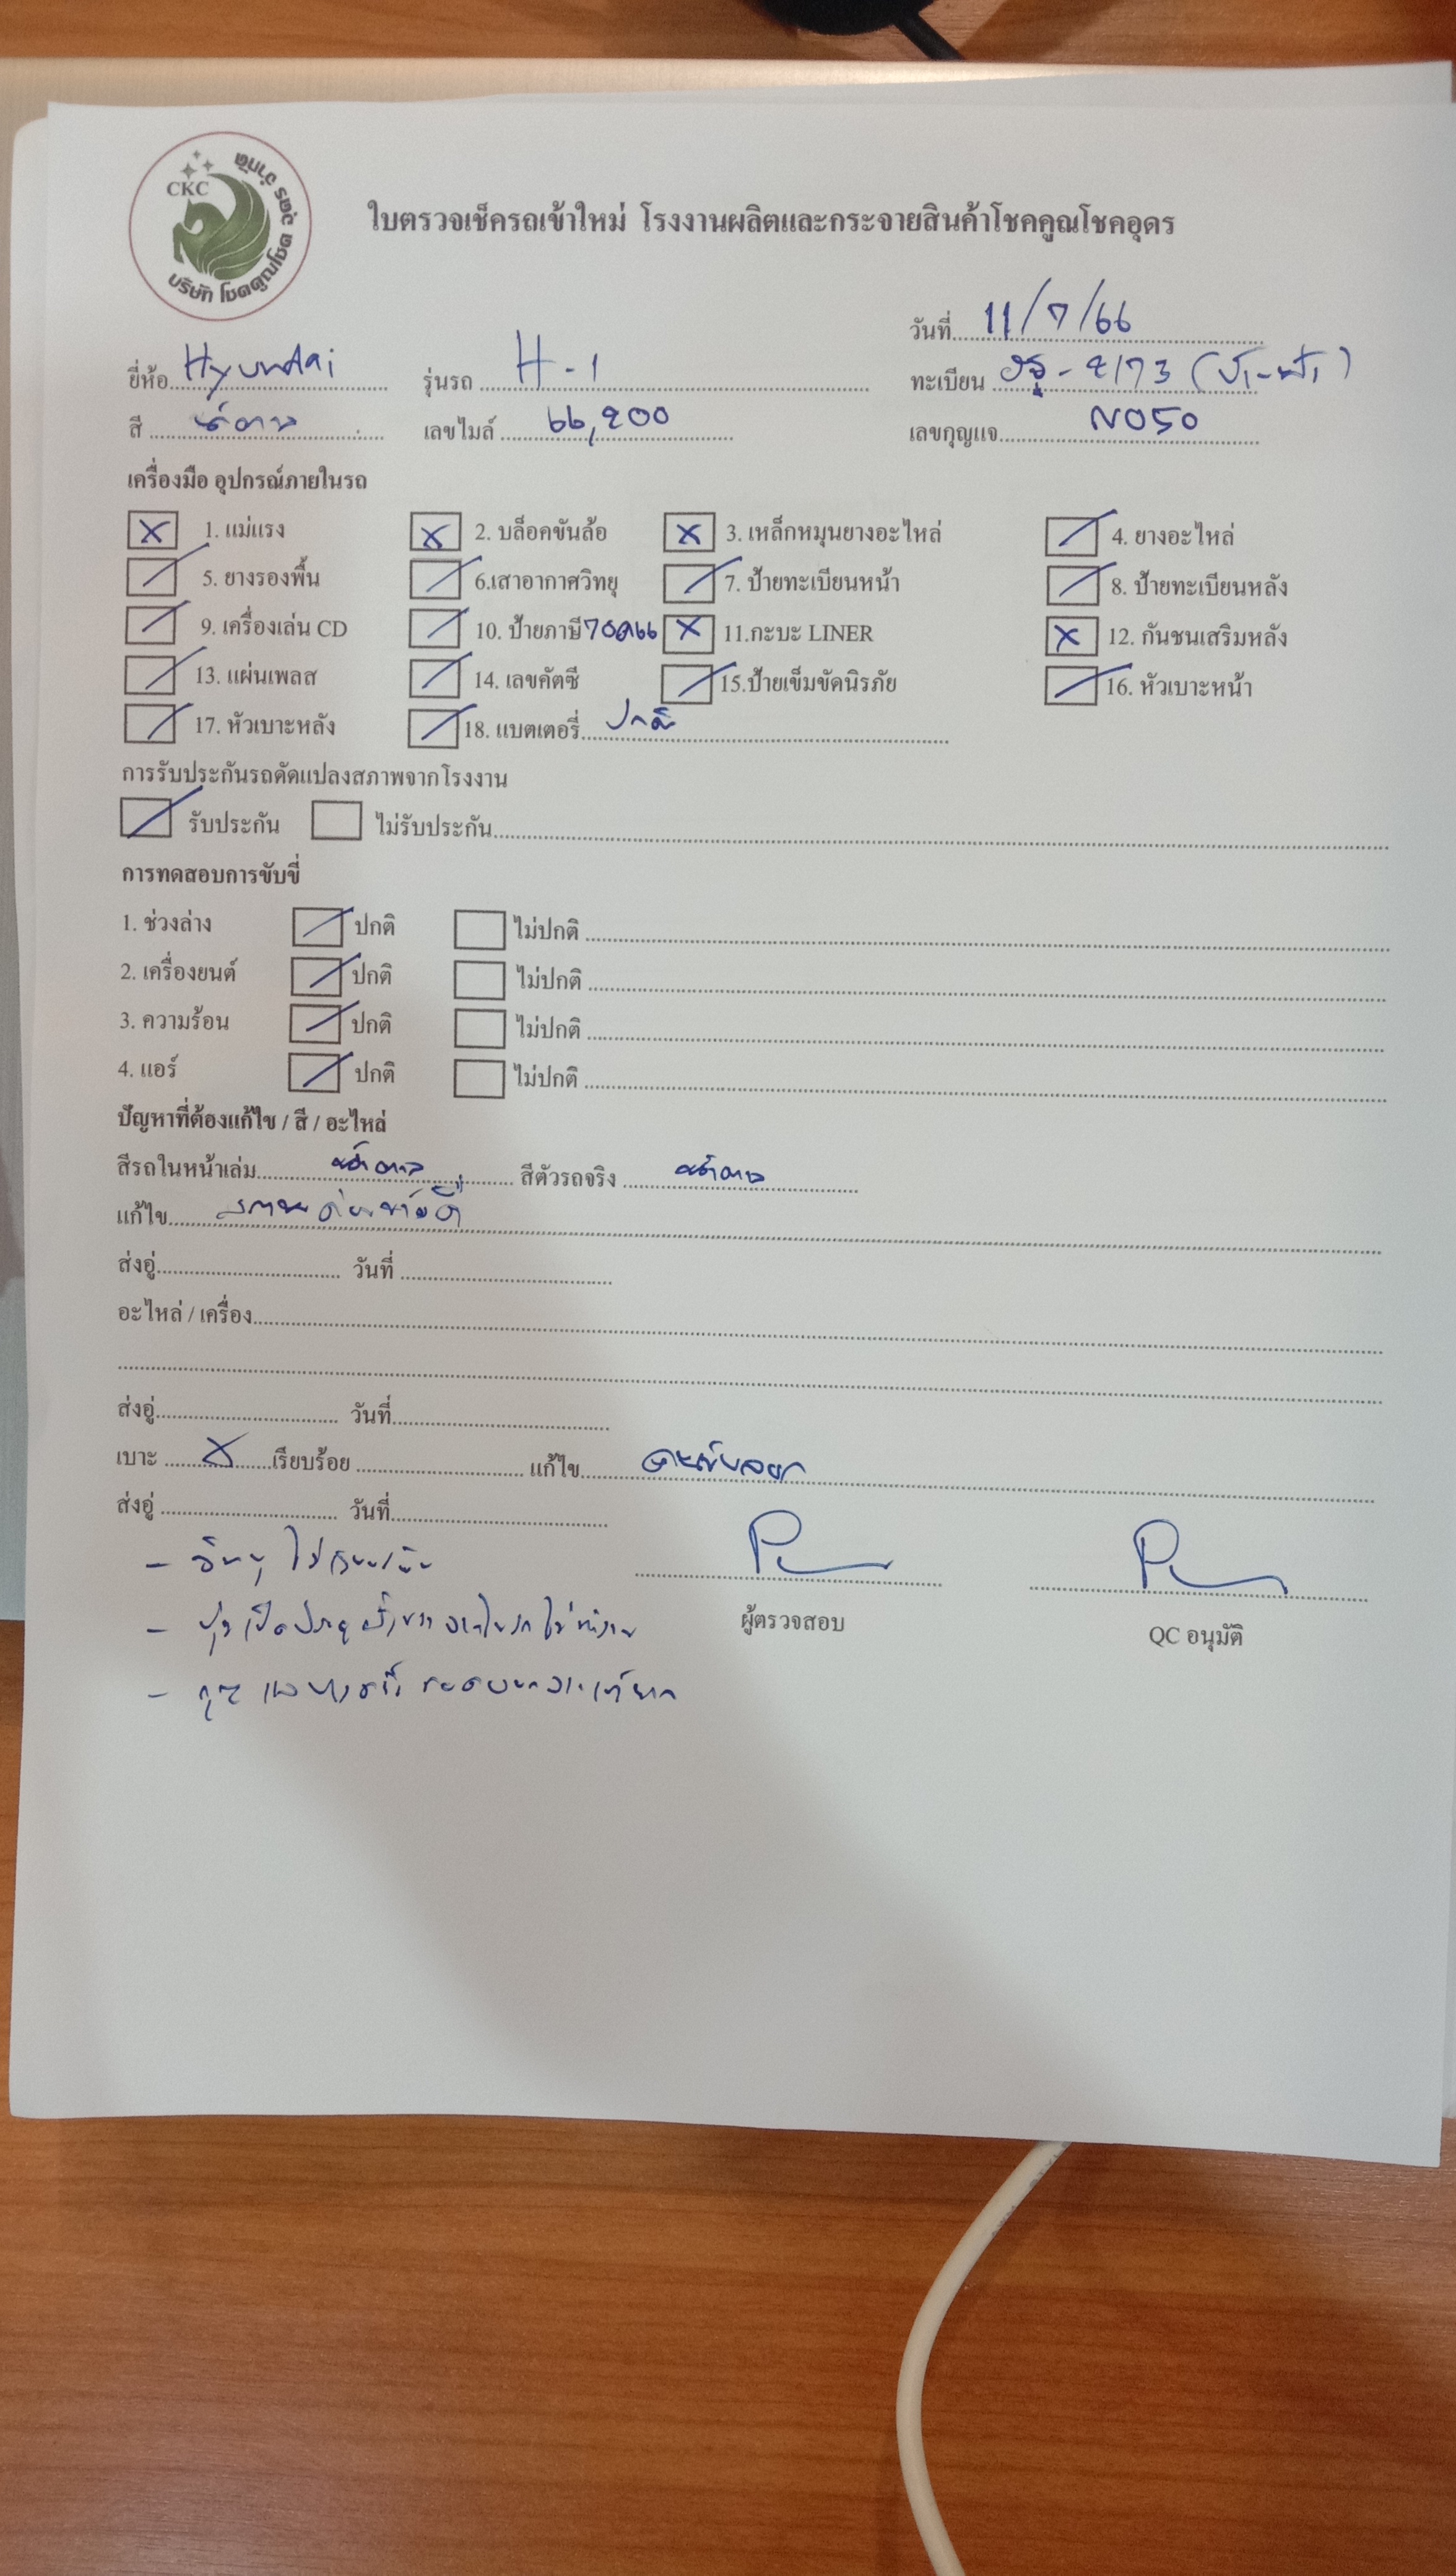 CKC
บริษัท โชคคูณโชค อุดร จำกัด
ใบตรวจเช็ครถเข้าใหม่ โรงงานผลิตและกระจายสินค้าโชคคูณโชคอุดร
วันที่ 11/7/66
ยี่ห้อ Hyundai รุ่นรถ H-1 ทะเบียน
สี เลขไมล์ 66,200 เลขกุญแจ N050
เครื่องมือ อุปกรณ์ภายในรถ
1. แม่แรง 2. บล็อคขันล้อ 3. เหล็กหมุนยางอะไหล่ 4. ยางอะไหล่
5. ยางรองพื้น 6.เสาอากาศวิทยุ 7. ป้ายทะเบียนหน้า 8. ป้ายทะเบียนหลัง
9. เครื่องเล่น CD 10. ป้ายภาษี 11.กะบะ LINER 12. กันชนเสริมหลัง
13. แผ่นเพลส 14. เลขคัตซี 15.ป้ายเข็มขัดนิรภัย 16. หัวเบาะหน้า
17. หัวเบาะหลัง 18. แบตเตอรี่ ปกติ
การรับประกันรถดัดแปลงสภาพจากโรงงาน
รับประกัน ไม่รับประกัน
การทดสอบการขับขี่
1. ช่วงล่าง ปกติ ไม่ปกติ
2. เครื่องยนต์ ปกติ ไม่ปกติ
3. ความร้อน ปกติ ไม่ปกติ
4. แอร์ ปกติ ไม่ปกติ
ปัญหาที่ต้องแก้ไข / สี / อะไหล่
สีรถในหน้าเล่ม น้ำตาล สีตัวรถจริง น้ำตาล
แก้ไข
ส่งอู่ วันที่
อะไหล่ / เครื่อง
ส่งอู่ วันที่
เบาะ เรียบร้อย แก้ไข
ส่งอู่ วันที่
ผู้ตรวจสอบ QC อนุมัติ